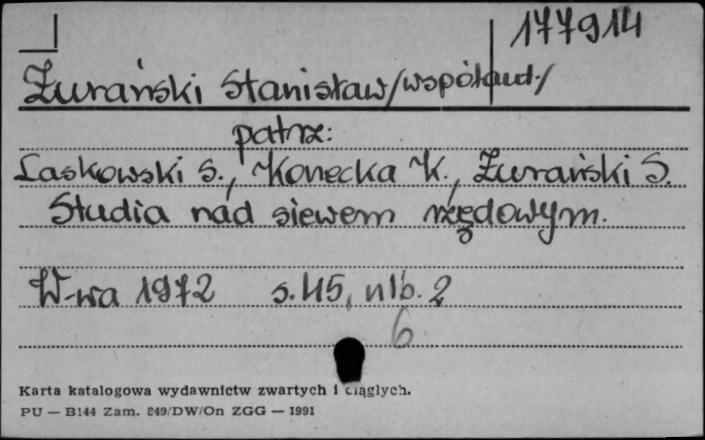 177914
Żurański Stanisław /współaut./
patrz:
Laskowski S., Konecka K., Żurański S.
Studia nad siewem rzędowym.
W-wa 1972 s. 45, nlb. 2
6
Karta katalogowa wydawnictw zwartych i ciągłych.
PU — B144 Zam. 849/DW/On ZGG — 1991